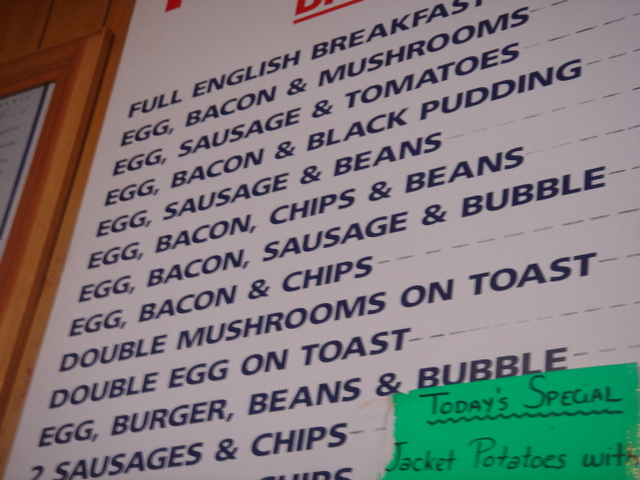 FULL ENGLISH BREAKFAST
EGG, BACON & MUSHROOMS
EGG, SAUSAGE & TOMATOES
EGG, BACON & BLACK PUDDING
EGG, SAUSAGE & BEANS
EGG, BACON, CHIPS & BEANS
EGG, BACON, SAUSAGE & BUBBLE
EGG, BACON & CHIPS
DOUBLE MUSHROOMS ON TOAST
DOUBLE EGG ON TOAST
EGG, BURGER, BEANS & BUBBLE
2 SAUSAGES & CHIPS
CHIPS
TODAY'S SPECIAL
Jacket Potatoes with